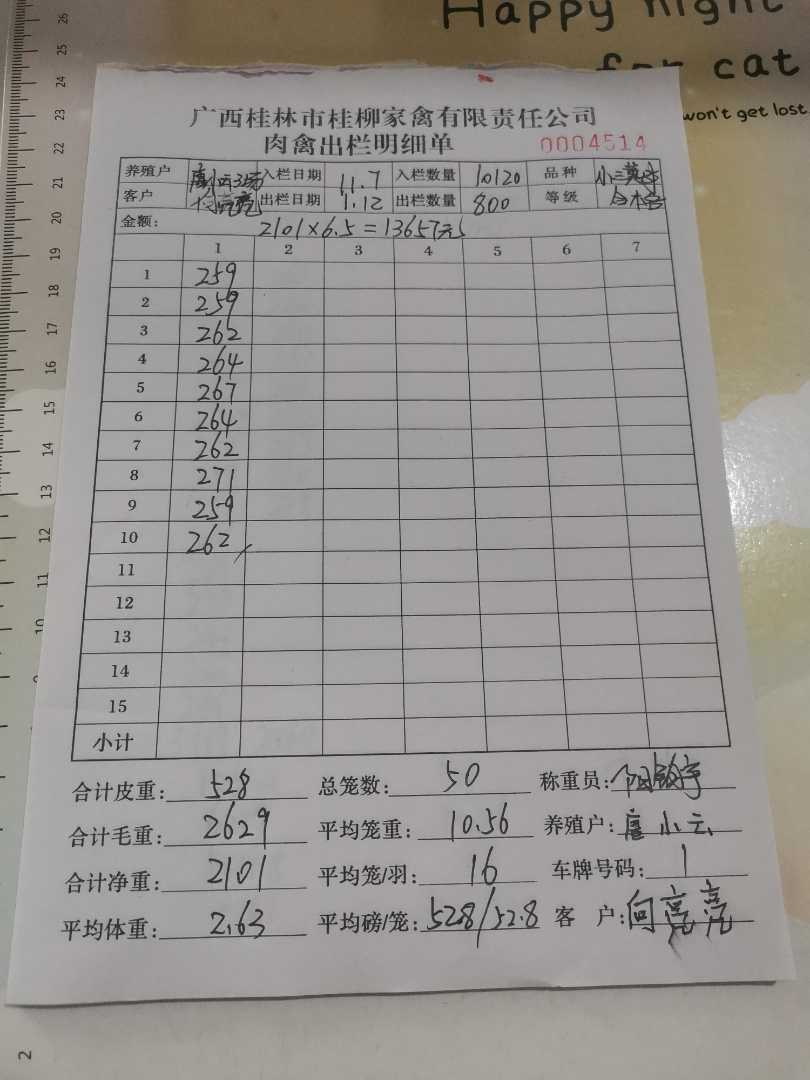 Happy night
for cat
won't get lost
广西桂林市桂柳家禽有限责任公司
肉禽出栏明细单 0004514
养殖户 入栏日期 11.7 入栏数量 10120 品种
客户 何亮亮 出栏日期 1.12 出栏数量 800 等级
金额: 2101×6.5=13657元
1 2 3 4 5 6 7
1 259
2 259
3 262
4 264
5 267
6 264
7 262
8 271
9 259
10 262
11
12
13
14
15
小计
合计皮重: 528 总笼数: 50 称重员:
合计毛重: 2629 平均笼重: 10.56 养殖户: 唐小云
合计净重: 2101 平均笼/羽: 16 车牌号码: 1
平均体重: 2.63 平均磅/笼: 528/52.8 客 户: 何亮亮
26
25
24
23
22
21
20
19
18
17
16
15
14
13
12
11
10
2